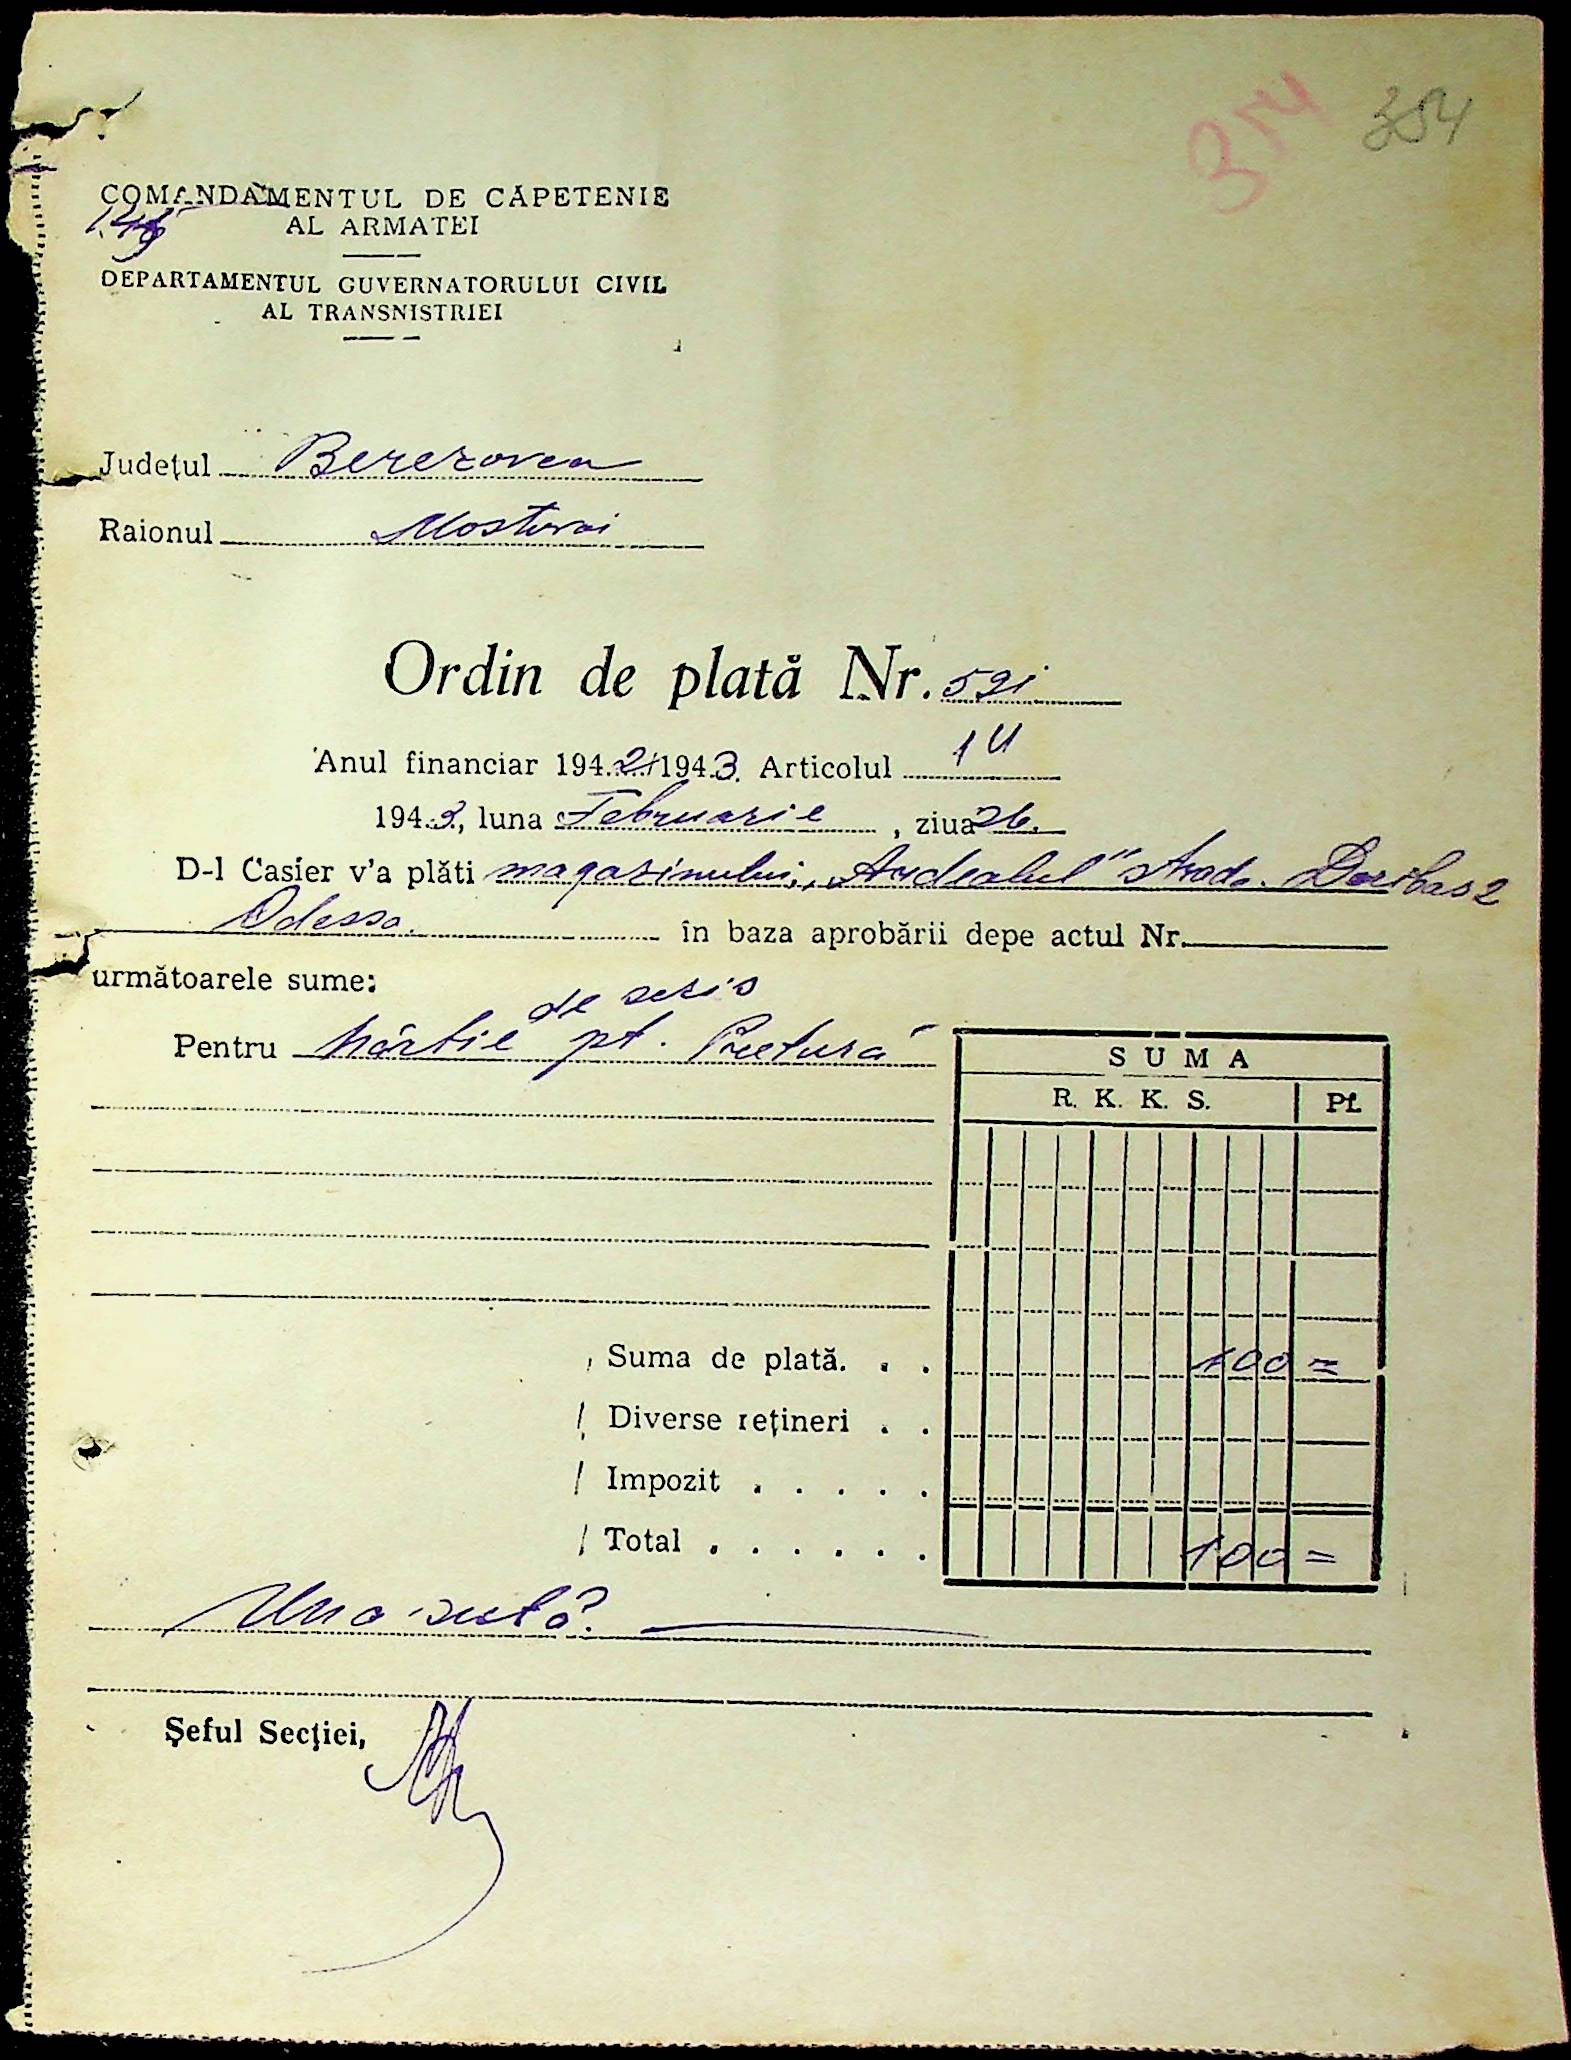 354 354
COMANDAMENTUL DE CĂPETENIE
AL ARMATEI
DEPARTAMENTUL GUVERNATORULUI CIVIL
AL TRANSNISTRIEI
Județul Berezovca
Raionul Mostovoi
Ordin de plată Nr. 591
Anul financiar 1942/1943. Articolul 14
1943, luna Februarie, ziua 26.
D-l Casier v'a plăti magazinului „Ardealul" strada. Deribas 2
Odessa. în baza aprobării depe actul Nr.
următoarele sume:
de scris
Pentru hârtie pt. Pretură
SUMA
R. K. K. S. Pf.
Suma de plată. . . 100 =
Diverse rețineri . .
Impozit . . . . .
Total . . . . . . . 100 =
Una sută
Șeful Secției,